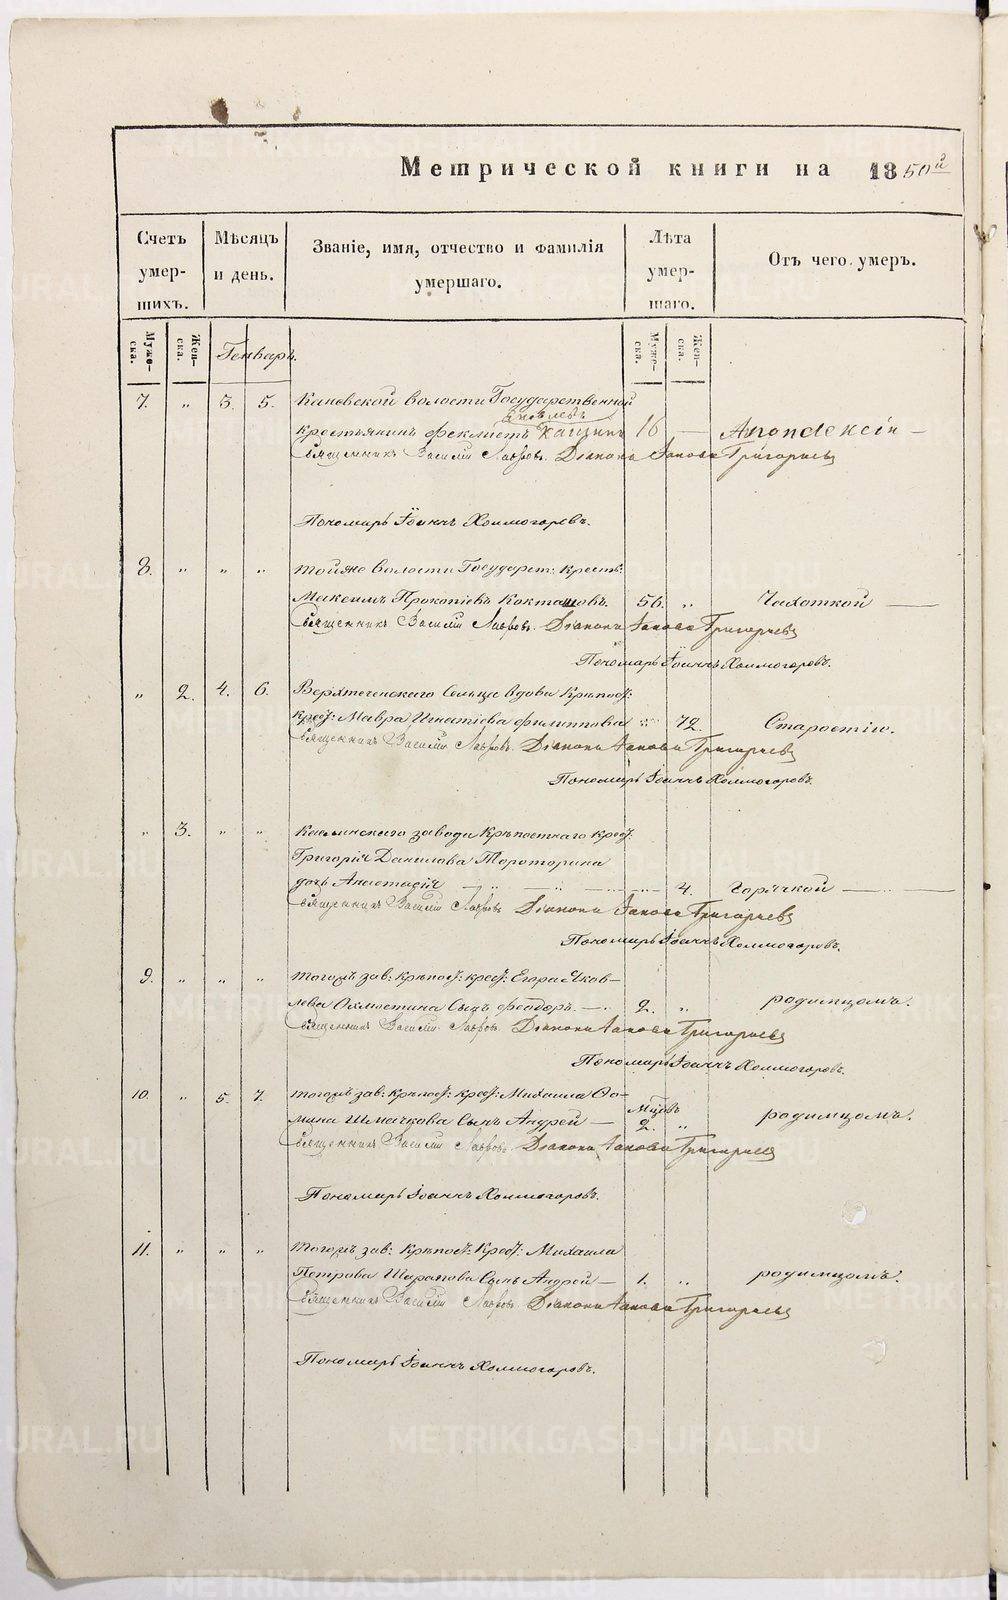 Метрической книги на 1850й
Счетъ умер-шихъ.
Мѣсяцъ и день.
Званіе, имя, отчество и фамилія умершаго.
Лѣта умер-шаго.
Отъ чего умеръ.
Муже-ска.
Жен-ска.
Генварь.
Муже-ска.
Жен-ска.
7. „ 3. 5. волости Государственной
Яковлевъ
крестьянинъ Феклистъ 16 —
Священникъ Василій Лавровъ. Діаконъ Іаковъ Григорьевъ
Пономарь Іоаннъ Холмогоровъ.
8. „ „ „ Тойже волости Государст: Крестъ:
Максимъ Прокопіевъ 56. „ Чахоткой —
Священникъ Василій Лавровъ. Діаконъ Іаковъ Григорьевъ
Пономарь Іоаннъ Холмогоровъ.
„ 2. 4. 6. Верхтеченскаго Сельца вдова Крѣпост:
крест: Мавра Игнатіева Филиппова „ 72. Старостію.
Священникъ Василій Лавровъ. Діаконъ Іаковъ Григорьевъ
Пономарь Іоаннъ Холмогоровъ.
„ 3. „ „ Каслинскаго завода Крѣпостнаго крест:
Григорія Данилова
дочь Анастасія — 4. Горячкой —
Священникъ Василій Лавровъ Діаконъ Іаковъ Григорьевъ
Пономарь Іоаннъ Холмогоровъ.
9. „ „ „ Тогожъ зав: крѣпост: крест: Егора Яков-
лева Сынъ Феодоръ — 2. „ родимцомъ.
Священникъ Василій Лавровъ. Діаконъ Іаковъ Григорьевъ
Пономарь Іоаннъ Холмогоровъ.
10. „ 5. 7. Тогожъ зав: крѣпост: крест: Михаила Ѳо-
Мцовъ
мина Сынъ Андрей — 2. „ родимцомъ.
Священникъ Василій Лавровъ. Діаконъ Іаковъ Григорьевъ
Пономарь Іоаннъ Холмогоровъ.
11. „ „ „ Тогожъ зав: Крѣпост: Крест: Михаила
Петрова Шарапова Сынъ Андрей — 1. „ родимцомъ.
Священникъ Василій Лавровъ. Діаконъ Іаковъ Григорьевъ
Пономарь Іоаннъ Холмогоровъ.
METRIKI.GASO-URAL.RU